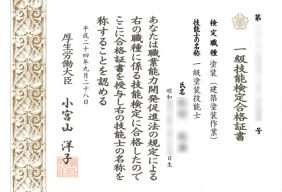 一級技能検定合格証書
第 号
検定職種 塗装(建築塗装作業)
技能士の名称 一級塗装技能士
氏名
昭和 生
あなたは職業能力開発促進法の規定による
右の職種に係る技能検定に合格したので
ここに合格証書を授与し右の技能士の名称を
称することを認める
平成二十四年九月二十八日
厚生労働大臣 小宮山洋子